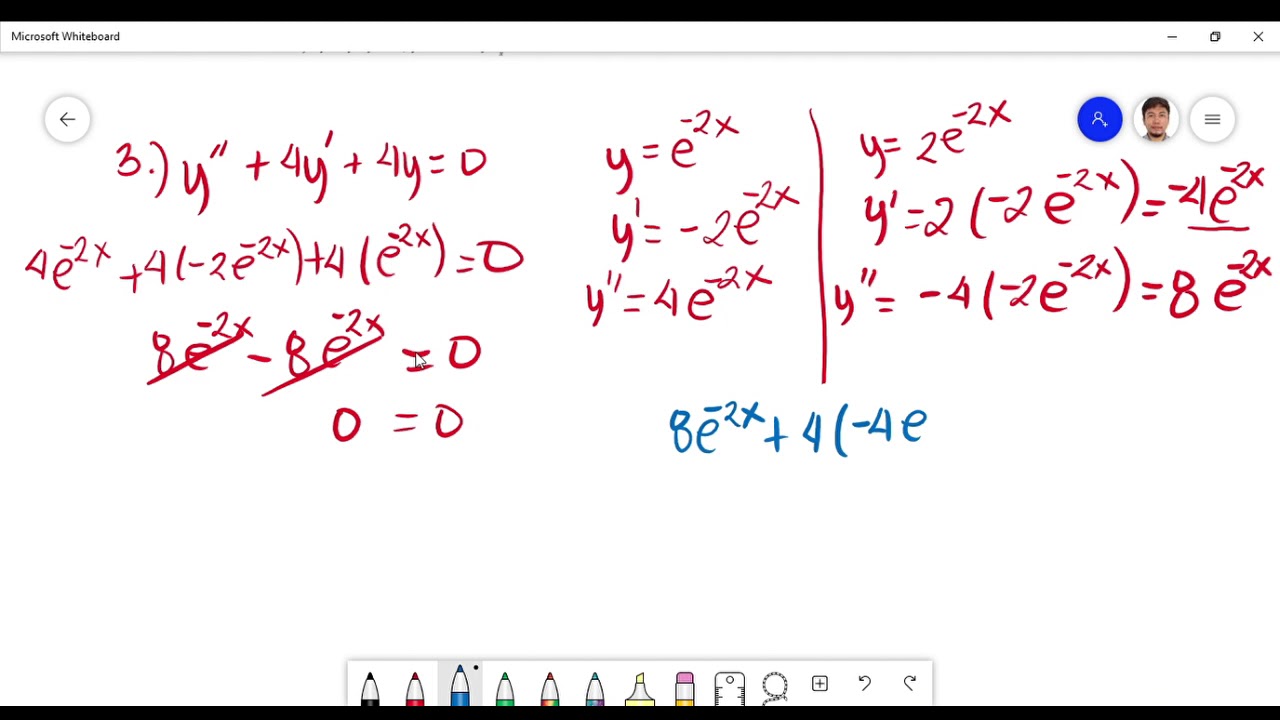 Microsoft Whiteboard
3.) y'' + 4y' + 4y = 0
4e^{-2x} + 4(-2e^{-2x}) + 4(e^{-2x}) = 0
8e^{-2x} - 8e^{-2x} = 0
0 = 0
y = e^{-2x}
y' = -2e^{-2x}
y'' = 4e^{-2x}
y = 2e^{-2x}
y' = 2(-2e^{-2x}) = -4e^{-2x}
y'' = -4(-2e^{-2x}) = 8e^{-2x}
8e^{-2x} + 4(-4e